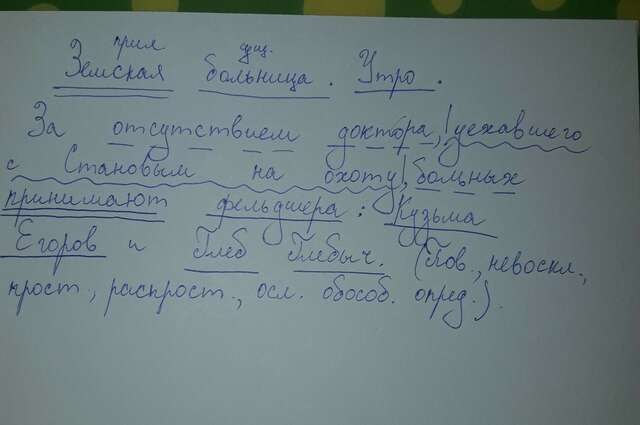 прил сущ.
Земская больница. Утро.
За отсутствием доктора, уехавшего
с Становым на охоту, больных
принимают фельдшера: Кузьма
Егоров и Глеб Глебыч. (Пов., невоскл.,
прост., распрост., осл. обособ. опред.).